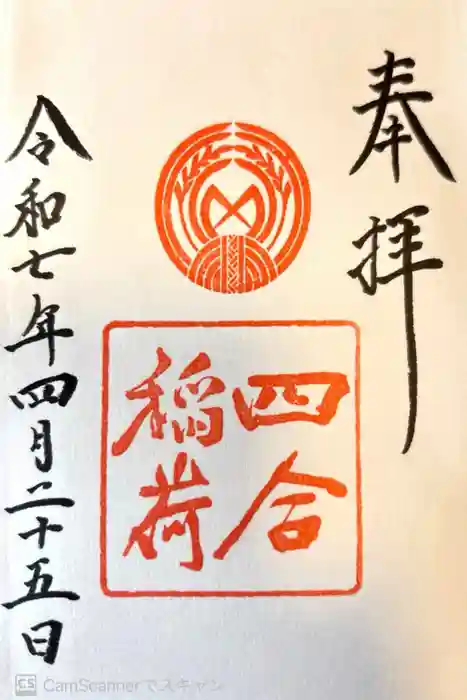 奉拝
四合
稲荷
令和七年四月二十五日
CS CamScannerでスキャン